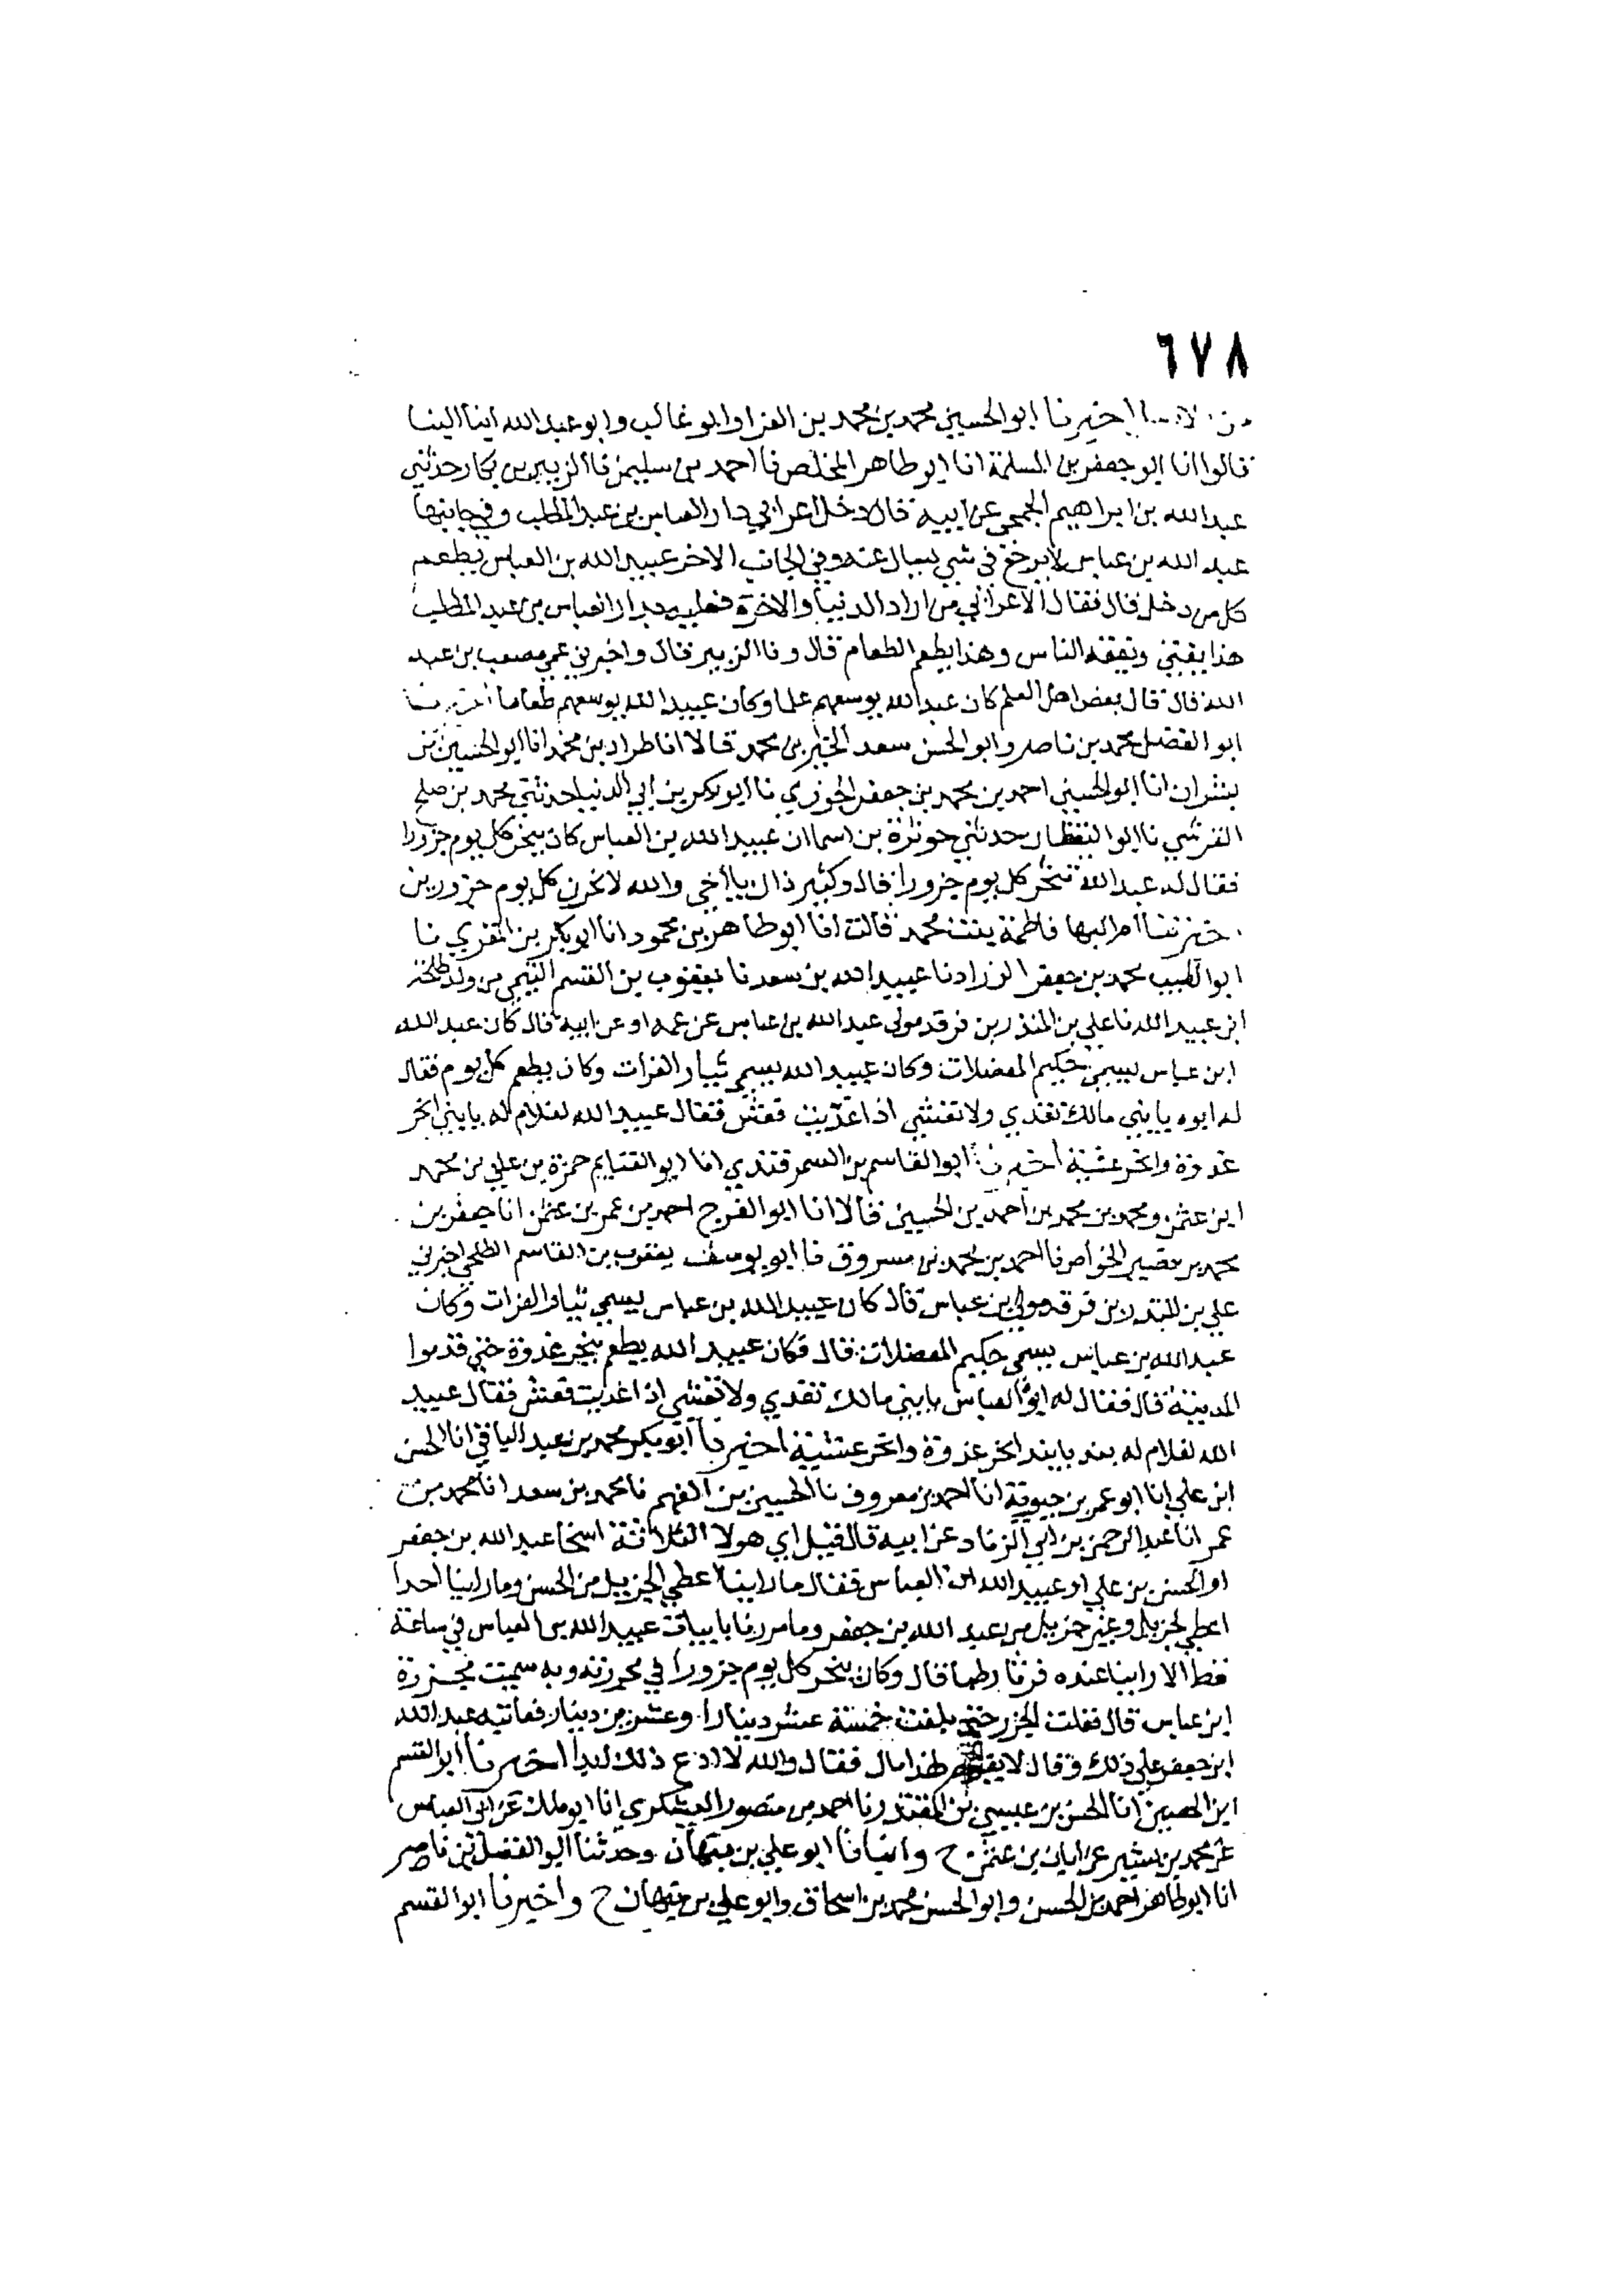 ٦٧٨
اخبرنا ابو الحسين محمد بن محمد بن الفرا وابو غالب وابو عبد الله ابنا البنا
قالوا انا ابو جعفر بن المسلمة انا ابو طاهر المخلص نا احمد بن سليمن نا الزبير بن بكار حدثني
عبد الله بن ابراهيم الجمحي عن ابيه قال دخل اعرابي دار العباس بن عبد المطلب وفي جانبها
عبد الله بن عباس لا يرجع في شي يسال عنه وفي الجانب الاخر عبيد الله بن العباس يطعم
كل من دخل قال فقال الاعرابي من اراد الدنيا والاخرة فعليه بدار العباس بن عبد المطلب
هذا يفتي ويفقه الناس وهذا يطعم الطعام قال ونا الزبير قال واخبرني عمي مصعب بن عبد
الله قال قال بعض اهل العلم كان عبد الله يوسعهم علما وكان عبيد الله يوسعهم طعاما اخبرنا
ابو الفضل محمد بن ناصر وابو الحسن سعد الخير بن محمد قالا انا طراد بن محمد انا ابو الحسين بن
بشران انا ابو الحسين احمد بن محمد بن جعفر الجوزي نا ابو بكر بن ابي الدنيا حدثني محمد بن صلح
القرشي نا ابو اليقظان حدثني جويرة بن اسما ان عبيد الله بن العباس كان ينحر كل يوم جزورا
فقال له عبد الله تنحر كل يوم جزورا قال وكثير ذاك يا اخي والله لانحرن كل يوم جزورين
اخبرتنا ام البها فاطمة بنت محمد قالت انا ابو طاهر بن محمود انا ابو بكر بن المقري نا
ابو الطيب محمد بن جعفر الزراد نا عبيد الله بن سعد نا يعقوب بن القسم التيمي من ولد طلحة
ابن عبيد الله نا علي بن المنذر بن فرقد مولى عبد الله بن عباس عن عمه او عن ابيه قال كان عبد الله
ابن عباس يسمى حكيم المعضلات وكان عبيد الله يسمى تيار الفرات وكان يطعم كل يوم فقال
له ابوه يا بني مالك تغدي ولا تعشي اذا غديت فعش فقال عبيد الله لغلام له يا بني انحر
غدوة وانحر عشية اخبرنا ابو القاسم بن السمرقندي انا ابو الغنايم حمزة بن علي بن محمد
ابن عثمن ومحمد بن محمد بن احمد بن الحسين قالا انا ابو الفرج احمد بن عمر بن عثمن انا جعفر بن
محمد بن نصير الخواص نا احمد بن محمد بن مسروق نا ابو يوسف يعقوب بن القاسم الطلحي اخبرني
علي بن المنذر بن فرقد مولى بن عباس قال كان عبيد الله بن عباس يسمى تيار الفرات وكان
عبد الله بن عباس يسمى حكيم المعضلات قال فكان عبيد الله يطعم ينحر غدوة حتى قدموا
المدينة قال فقال له ابو العباس يا بني مالك تغدي ولا تعشي اذا غديت فعش فقال عبيد
الله لغلام له بند يا بند انحر غدوة وانحر عشية اخبرنا ابو بكر محمد بن عبد الباقي انا الحسن
ابن علي انا ابو عمر بن حيوية انا احمد بن معروف نا الحسين بن الفهم نا محمد بن سعد انا محمد بن
عمر انا عبد الرحمن بن ابي الزناد عن ابيه قال قيل اي هولا الثلاثة اسخا عبد الله بن جعفر
او الحسن بن علي او عبيد الله ابن العباس فقال ما راينا اعطي الجزيل من الحسن وما راينا احدا
اعطي لجزيل وغير جزيل من عبد الله بن جعفر وما مررنا بابيات عبيد الله بن العباس في ساعة
قط الا راينا عنده فرثا رطبا قال وكان ينحر كل يوم جزورا في مجزرته وبه سميت مجزرة
ابن عباس قال فغلت الجزر حتى بلغت خمسة عشر دينارا وعشرين دينار فعاتبه عبد الله
ابن جعفر علي ذلك وقال لا يقوم لهذا مال فقال والله لا ادع ذلك ابدا اخبرنا ابو القسم
ابن الحصين انا الحسن بن عيسي بن المقتدر نا احمد بن منصور اليشكري انا ابو ملك عن ابي العباس
عن محمد بن بشير عن ابان بن عثمن ح وانبانا ابو علي بن نبهان وحدثنا ابو الفضل بن ناصر
انا ابو طاهر احمد بن الحسن وابو الحسن محمد بن اسحاق وابو علي بن نبهان ح واخبرنا ابو القسم